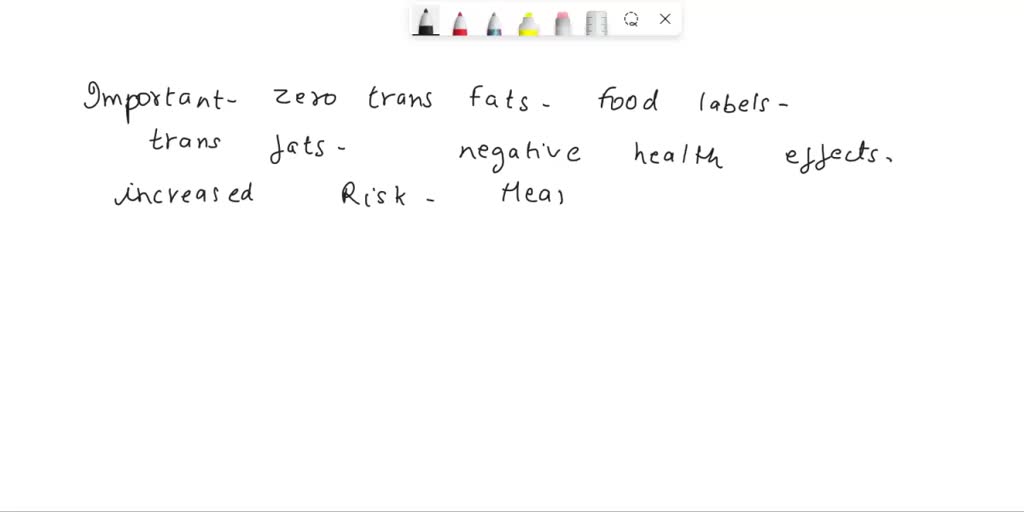 Important- zero trans fats- food labels-
trans fats- negative health effects.
increased Risk - Hea